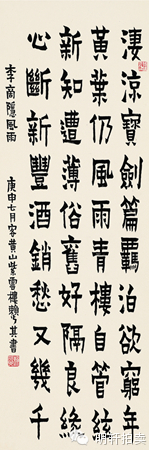 淒涼寶劍篇羈泊欲窮年
黃葉仍風雨青樓自管絃
新知遭薄俗舊好隔良緣
心斷新豐酒銷愁又幾千
李商隱風雨 庚申七月黃山紫雲樓賴少其書
明轩拍卖